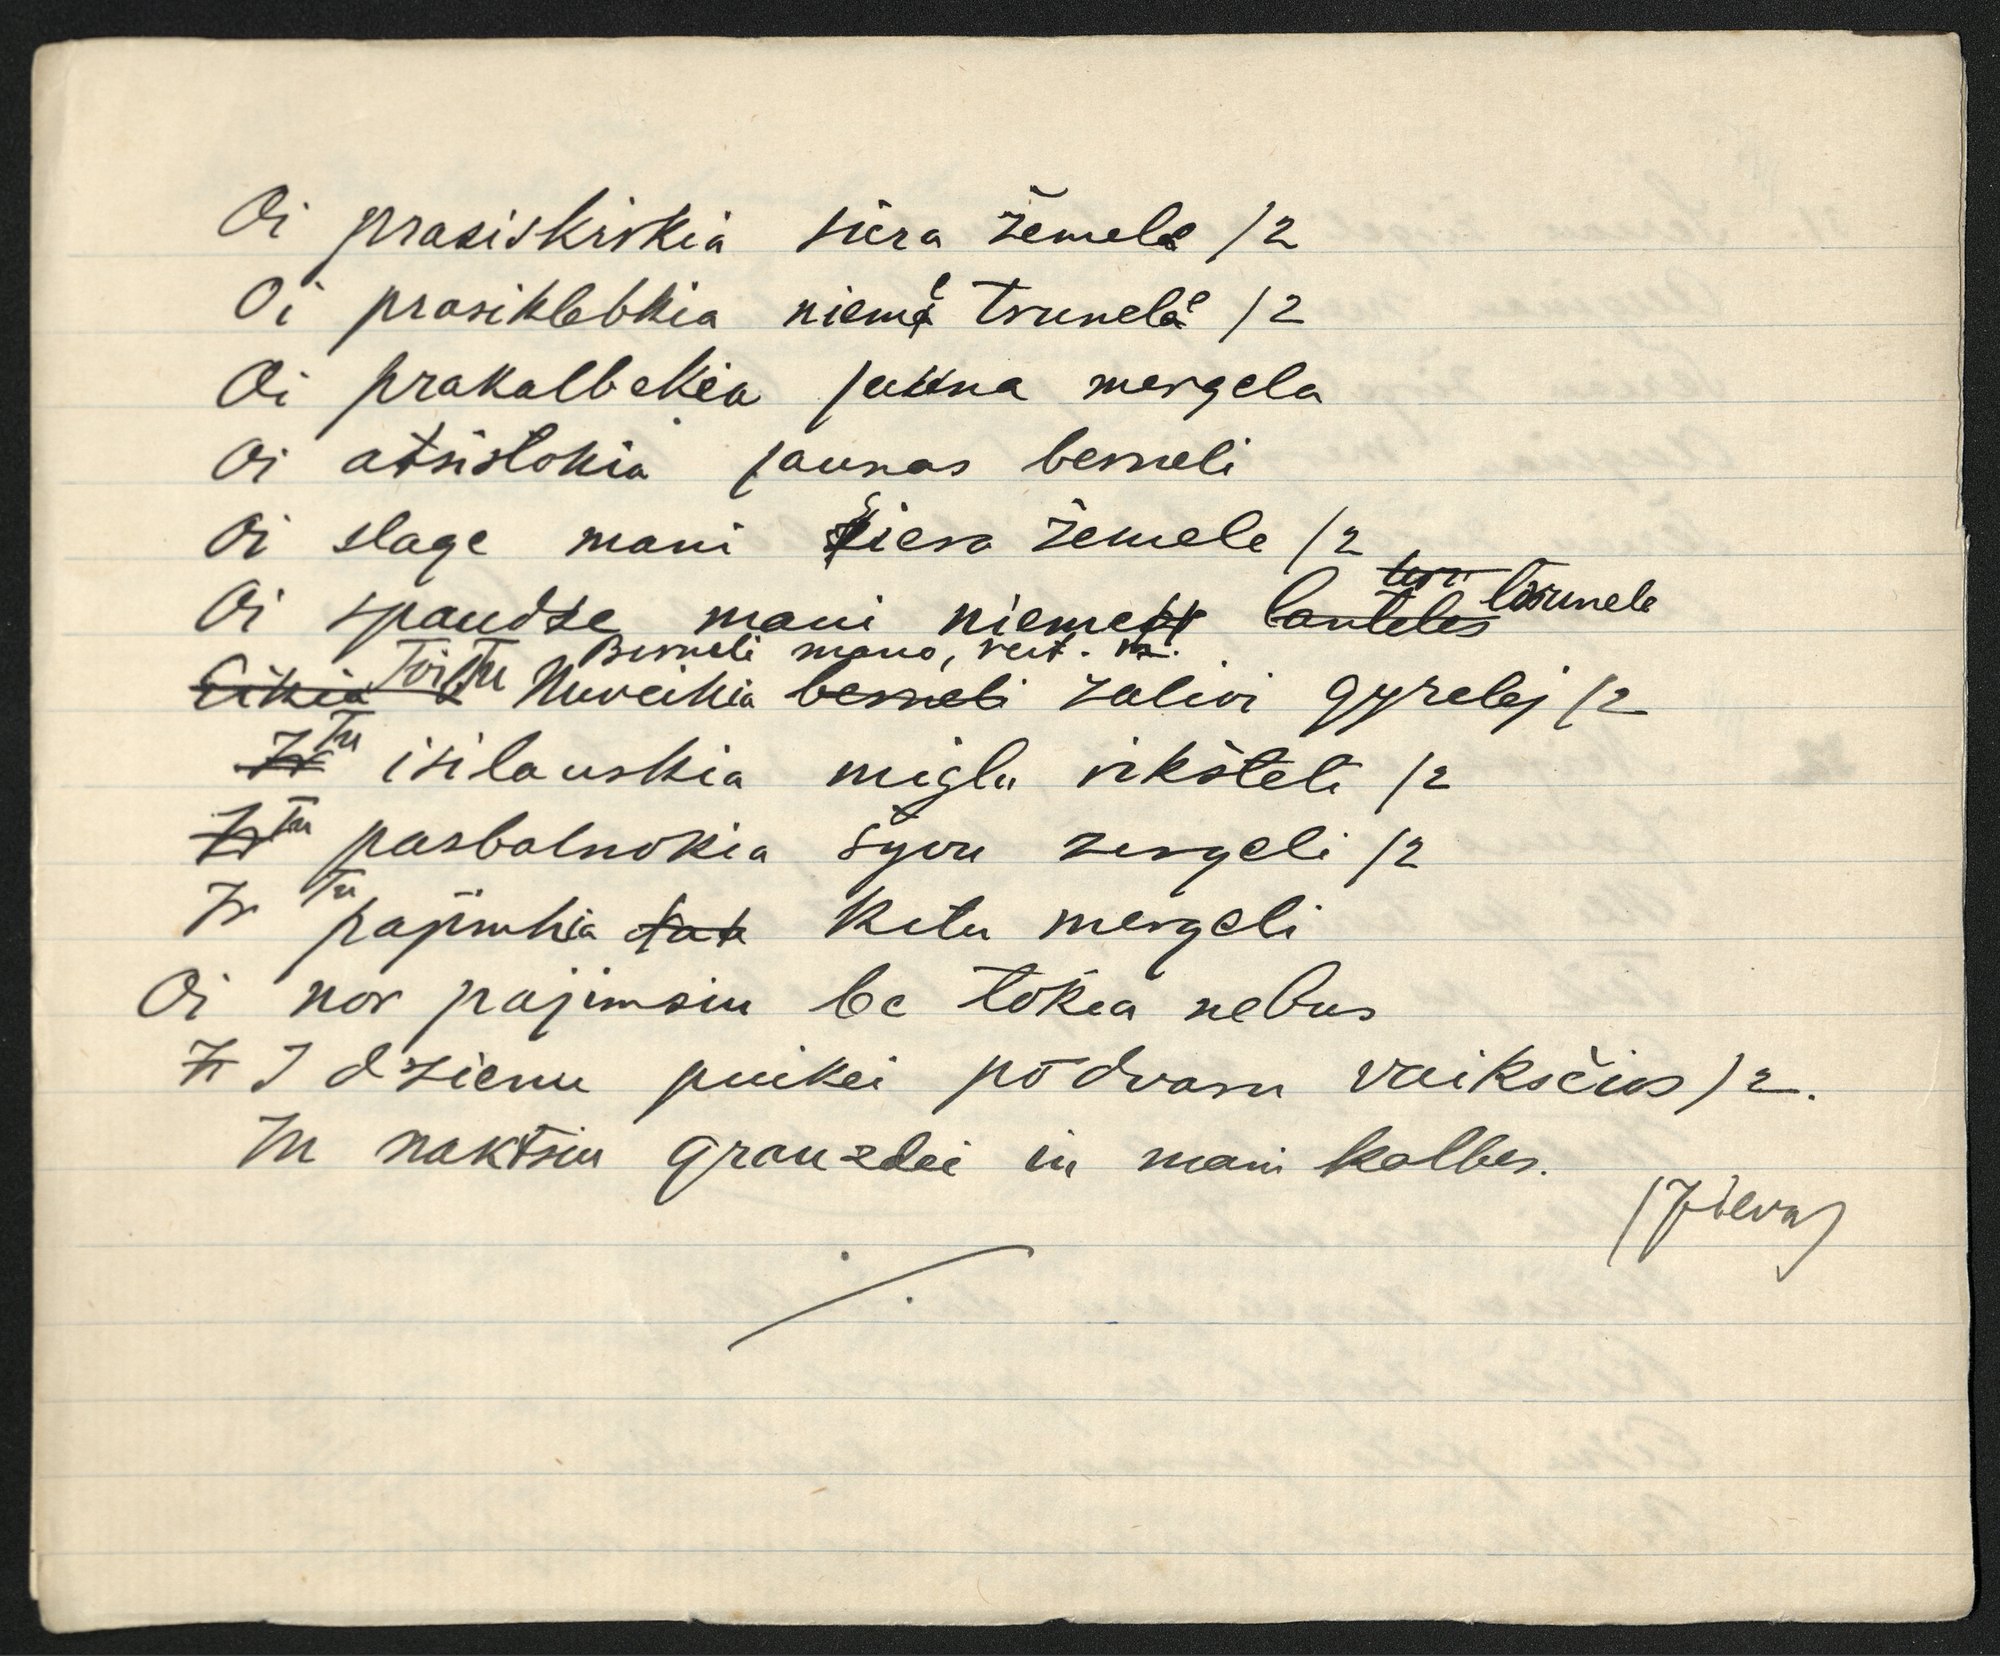 Oi prasiskirkia siera žemele /2
Oi prasiklebkia nieme trunele /2
Oi prakalbekia jauna mergela
Oi atsistokia jaunas berneli
Oi slage mani siera žemele /2
Oi spaudze mani nieme lenteles trunele
Berneli mano,
Eikia Tu Nuveikia berneli zalivi gyrelej /2
Ir Tu isilauskia miglu rikšteli /2
Ir Tu pasbalnokia šyvu zergeli /2
Ir Tu pajimkia kitu mergeli
Oi nor pajimsiu be tokia nebus
Ir I dzienu puikei po dvaru vaiksčius /2.
In naktsiu grauzdei in mani kalbes.
(Jieva)